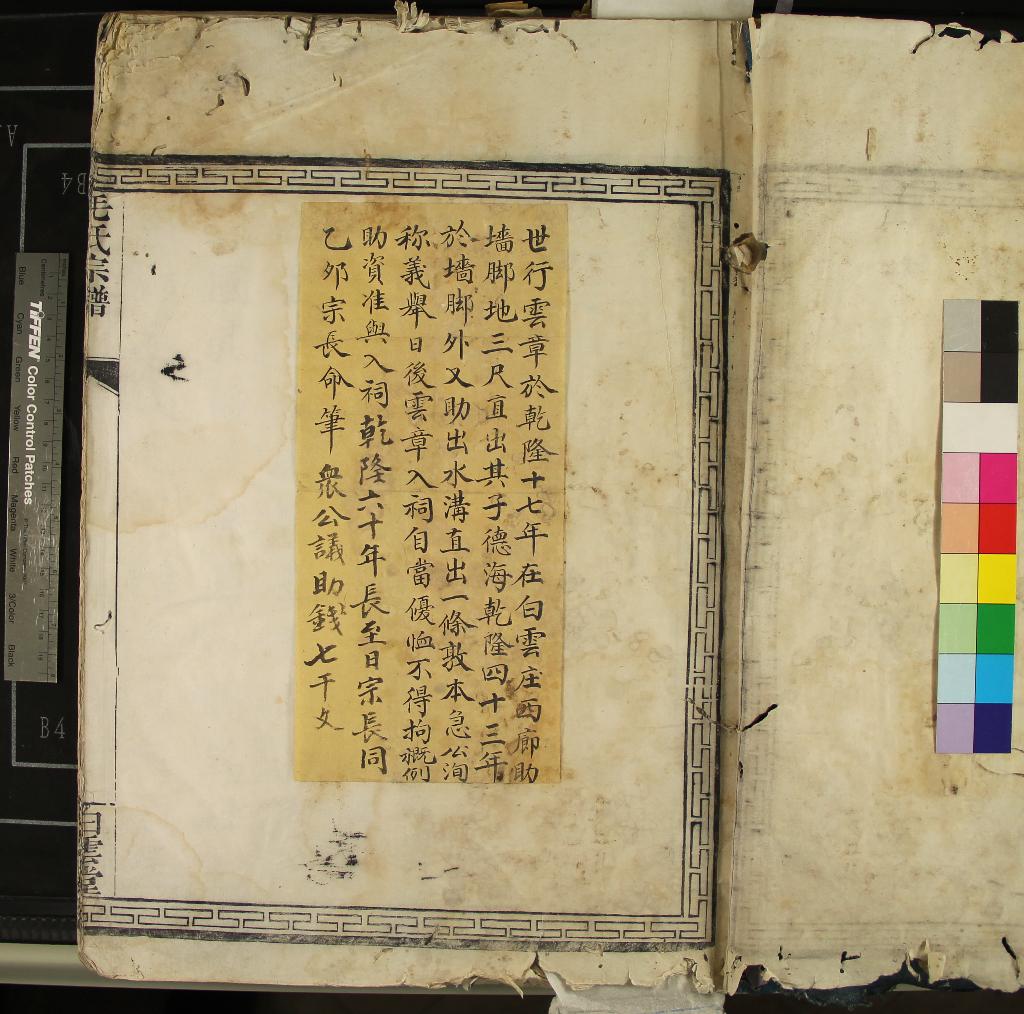 世行雲章於乾隆十七年在白雲庄西廊助
墻脚地三尺直出其子德海乾隆四十三年
於墻脚外又助出水溝直出一條敦本急公洵
称義舉日後雲章入祠自當優恤不得拘概例
助資准與入祠乾隆六十年長至日宗長同
乙夘宗長命筆 衆公議助錢七千文
毛氏宗譜
白雲堂
TIFFEN Color Control Patches
Blue Cyan Green Yellow Red Magenta White 3/Color Black
Centimetres
B4
B4
A